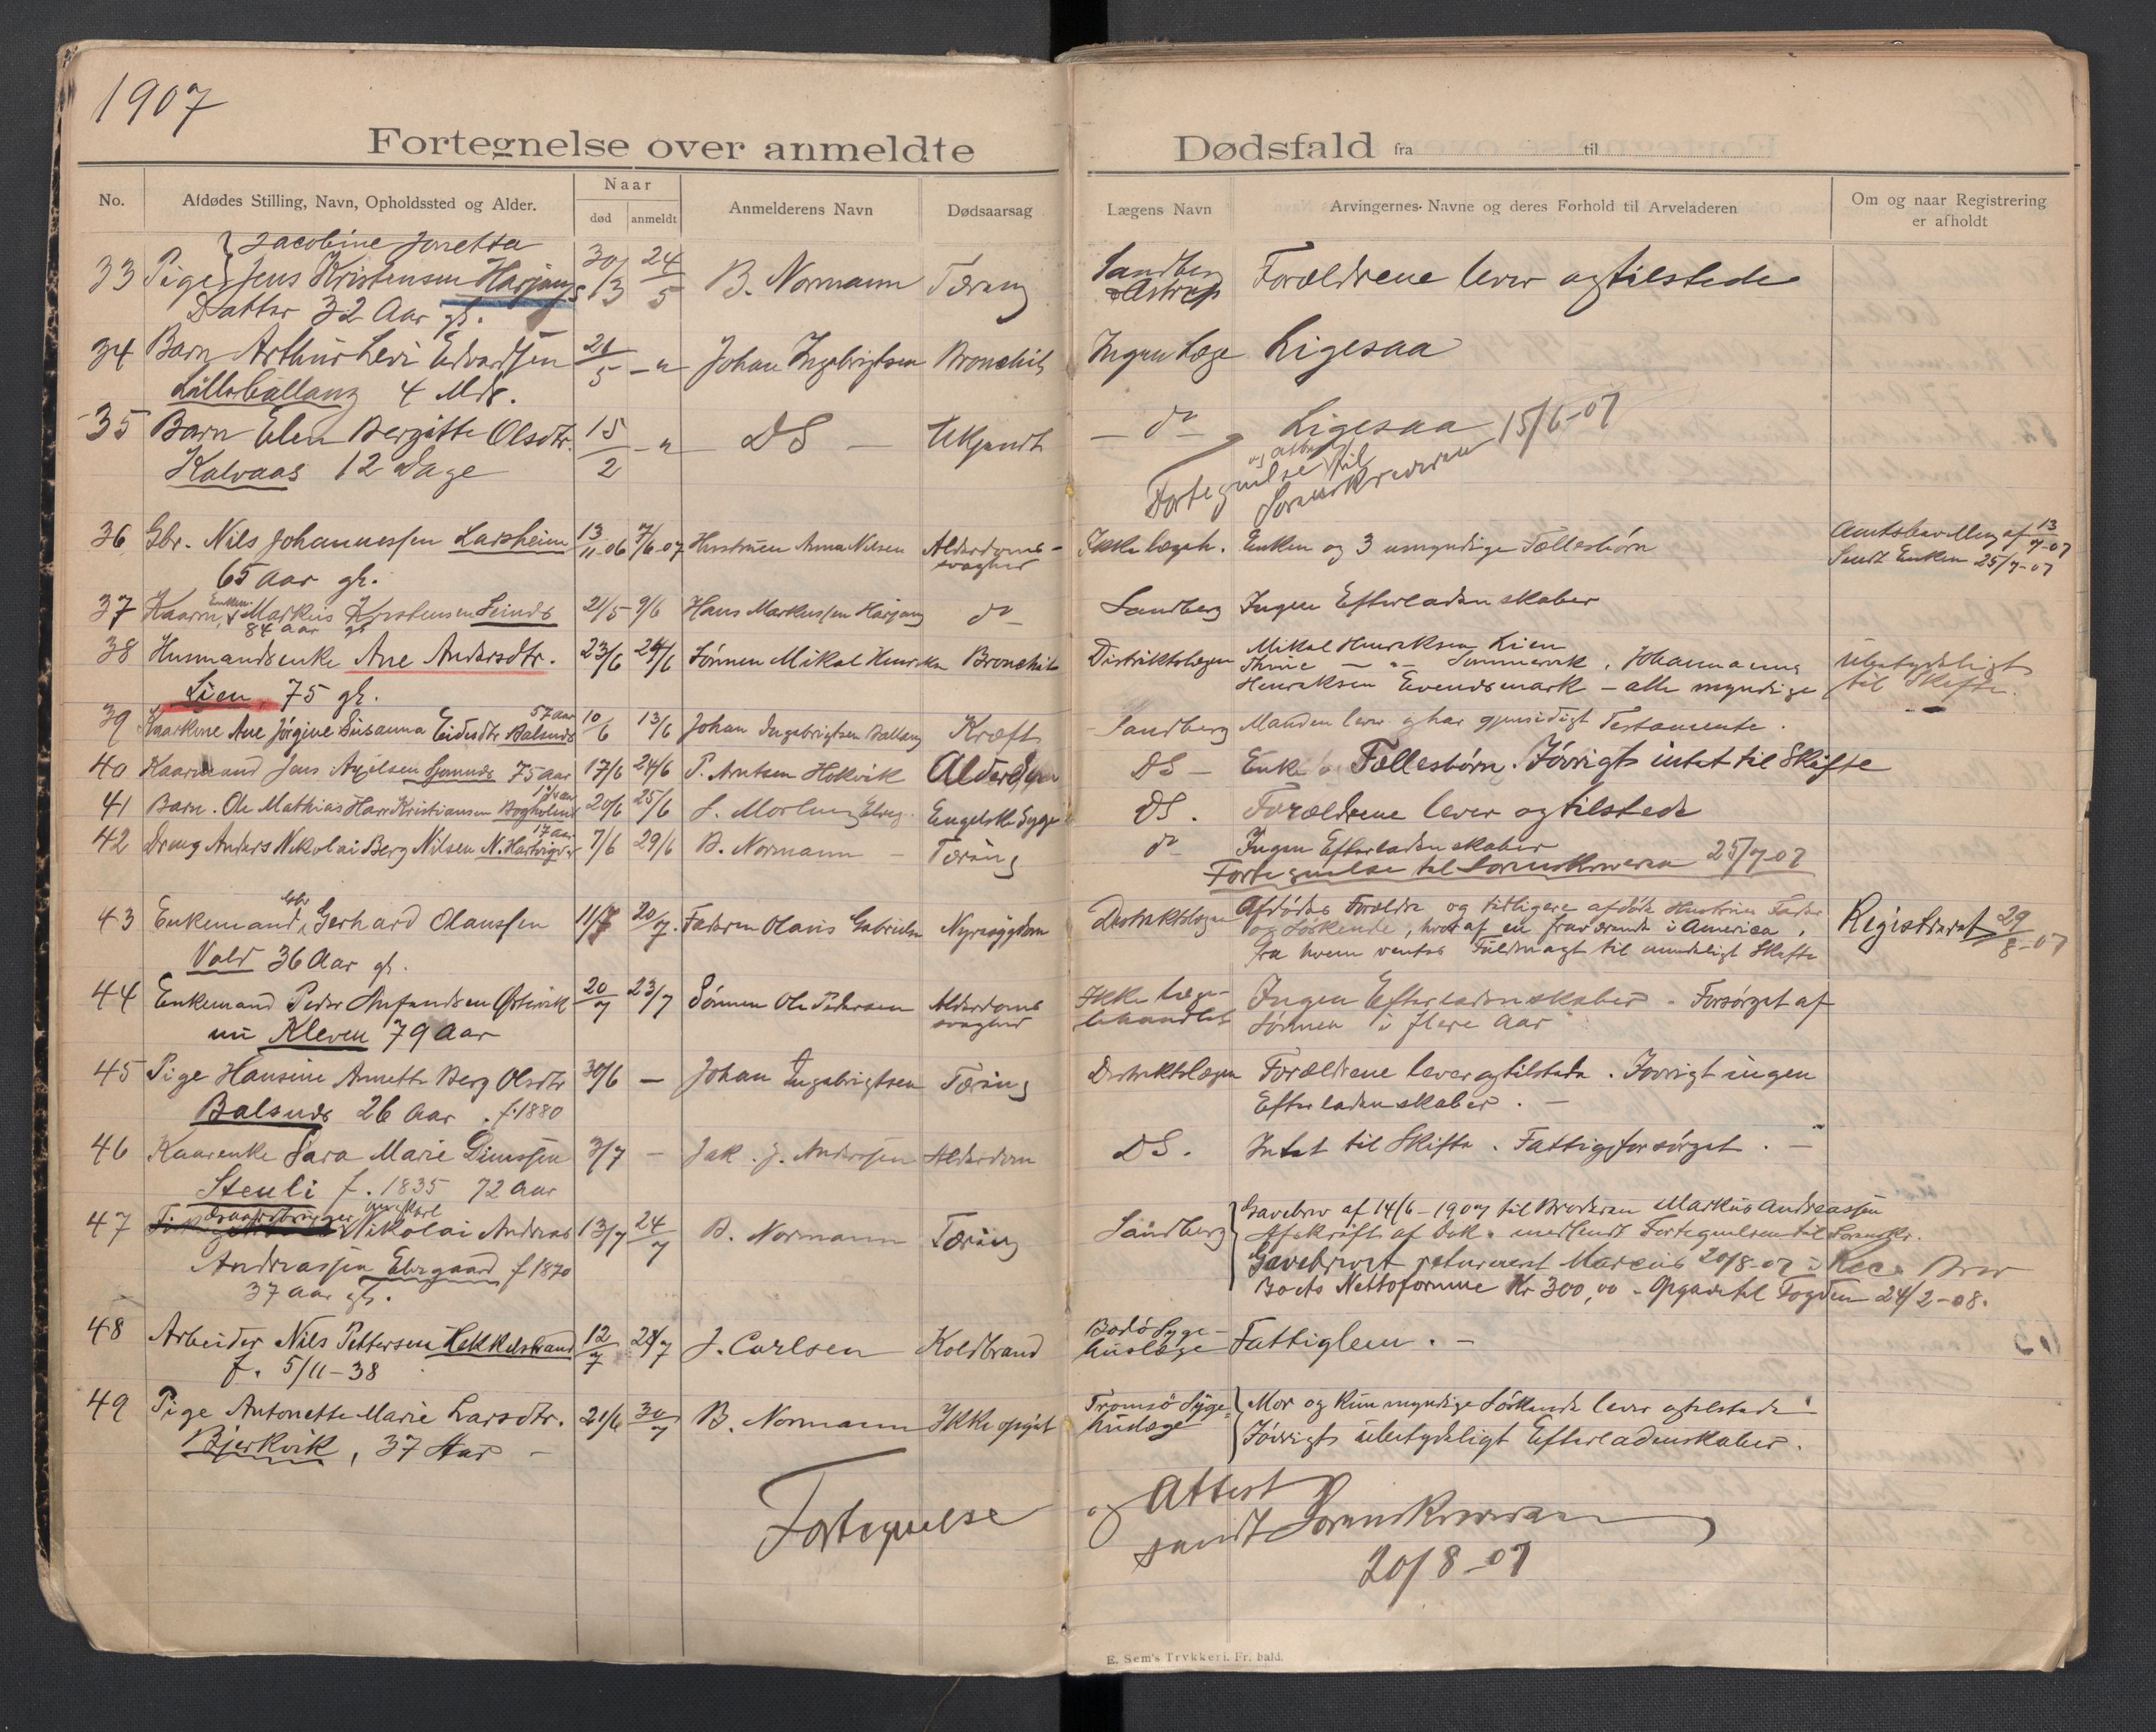 1907
Fortegnelse over anmeldte Dødsfald fra til
No. Afdødes Stilling, Navn, Opholdssted og Alder. Naar død anmeldt Anmelderens Navn Dødsaarsag Lægens Navn Arvingernes Navne og deres Forhold til Arveladeren Om og naar Registrering er afholdt
Jacobine Jonetta
33 Pige Jens Kristensen Harjangs 30/3 24/5 B. Normann Tæring Sandberg Forældrene lever og tilstede
Datter 32 Aar gl.
34 Barn Arthur Levi Edvardsen 21/5 - " Johan Ingebrigtsen Bronchit Ingen Læge Ligesaa
Lilleballang 4 Mdr.
35 Barn Elen Bergitte Olsdtr. 15/2 - " DS - Ukjendt - do - Ligesaa 15/6-07
Kalvaas 12 Dage
Fortegnelse til
Sorenskriveren
36 Gbr. Nils Johannessen Larsheim 13/11-06 7/6-07 Hustruen Anna Nilsen Alderdoms- Ikke lægeb. Enken og 3 umyndige Fællesbørn Amtsbevilling af 13/7-07
65 Aar gl. svaghed Sendt Enken 25/7-07
37 Kaarm. Enken Markus Kristensen Leinds 21/5 9/6 Hans Markussen Harjang do Sandberg Ingen Efterladenskaber
84 Aar gl
38 Husmandsenke Ane Andersdtr. 23/6 24/6 Sønnen Mikal Henriksen Bronchit Distriktslægen Mikal Henriksen Lien
- " - Sommervik, Johan Henriksen Evendsmark - alle myndige Ubetydeligt til Skifte.
Lien, 75 gl.
39 Ane Jørgine Susanna Eidisdtr Balsnes 57 aar 10/6 13/6 Johan Ingebrigtsen Ballang Kræft Sandberg Manden lever og har gjensidigt Testamente.
40 Kaarmand Jens Axelsen 75 Aar 17/6 24/6 P. Arntsen Hokvik DS - Enke Fællesbørn. Iøvrigt intet til Skifte
41 Barn. Ole Mathias Kristiansen Bogholmen 20/6 25/6 Engelske Syge DS. Forældrene lever og tilstede
42 Dreng Anders Nikolai Berg Nilsen 17 aar 7/6 29/6 B. Normann - Tæring do Ingen Efterladenskaber
Fortegnelse til Sorenskriveren 25/7-07
43 Enkemand Gbr Gerhard Olaussen 11/7 20/7. Faderen Olaus Gabrielsen Nyresygdom Distriktslægen Afdødes Forældre og tidligere afdøde Hustrues Fader
og Søskende, hvoraf en fraværende i America, Registreret 29/8-07
Vold 36 Aar gl. fra hvem ventes Fuldmagt til mindeligt Skifte
44 Enkemand Peder Anfindsen 20/7 23/7 Sønnen Ole Pedersen Alderdoms Ikke læge- Ingen Efterladenskaber - Forsørget af
nu Kleven 79 Aar svaghed behandlet Sønnen i flere Aar
45 Pige Hansine Annette Berg Olsdtr 30/6 - Johan Ingebrigtsen Tæring Distriktslægen Forældrene lever og tilstede. Iøvrigt ingen
Balsnes 26 Aar. f. 1880 Efterladenskaber. -
46 Kaarenke Sara Marie Simonsen 3/7 - Jak. J. Andersen Alderdom DS. Intet til Skifte. Fattigforsørget. -
Stenli f. 1835 72 Aar
47 Gaardbruger Ungkarl Nikolai Andreas 13/7 24/7 B. Normann Tæring Sandberg Gavebrev af 14/6-1907 til Broderen Markus Andreassen
Andreassen Elvegaard f 1870 Afskrift af Dok. medsendt Fortegnelsen til Sorenskr.
37 Aar gl. Gavebrevet returneret Marcus 20/8-07 i Rec. Brev
Boets Nettoformue Kr 300,00 - Opgave til Fogden 24/2-08.
48 Arbeider Nils Pettersen Hekkelstrand 12/7 28/7 J. Carlsen Koldbrand Bodø Syge- huslæge Fattiglem. -
f. 5/11-38
49 Pige Antonette Marie Larsdtr. 21/6 30/7 B. Normann Ikke opgit Tromsø Syge- Mor og kun myndige Søskende lever og tilstede
Bjerkvik, 37 Aar - huslæge Iøvrigt ubetydeligt Efterladenskaber.
Fortegnelse og Attest
sendt Sorenskriveren
20/8-07
E. Sem's Trykkeri, Fr. hald.